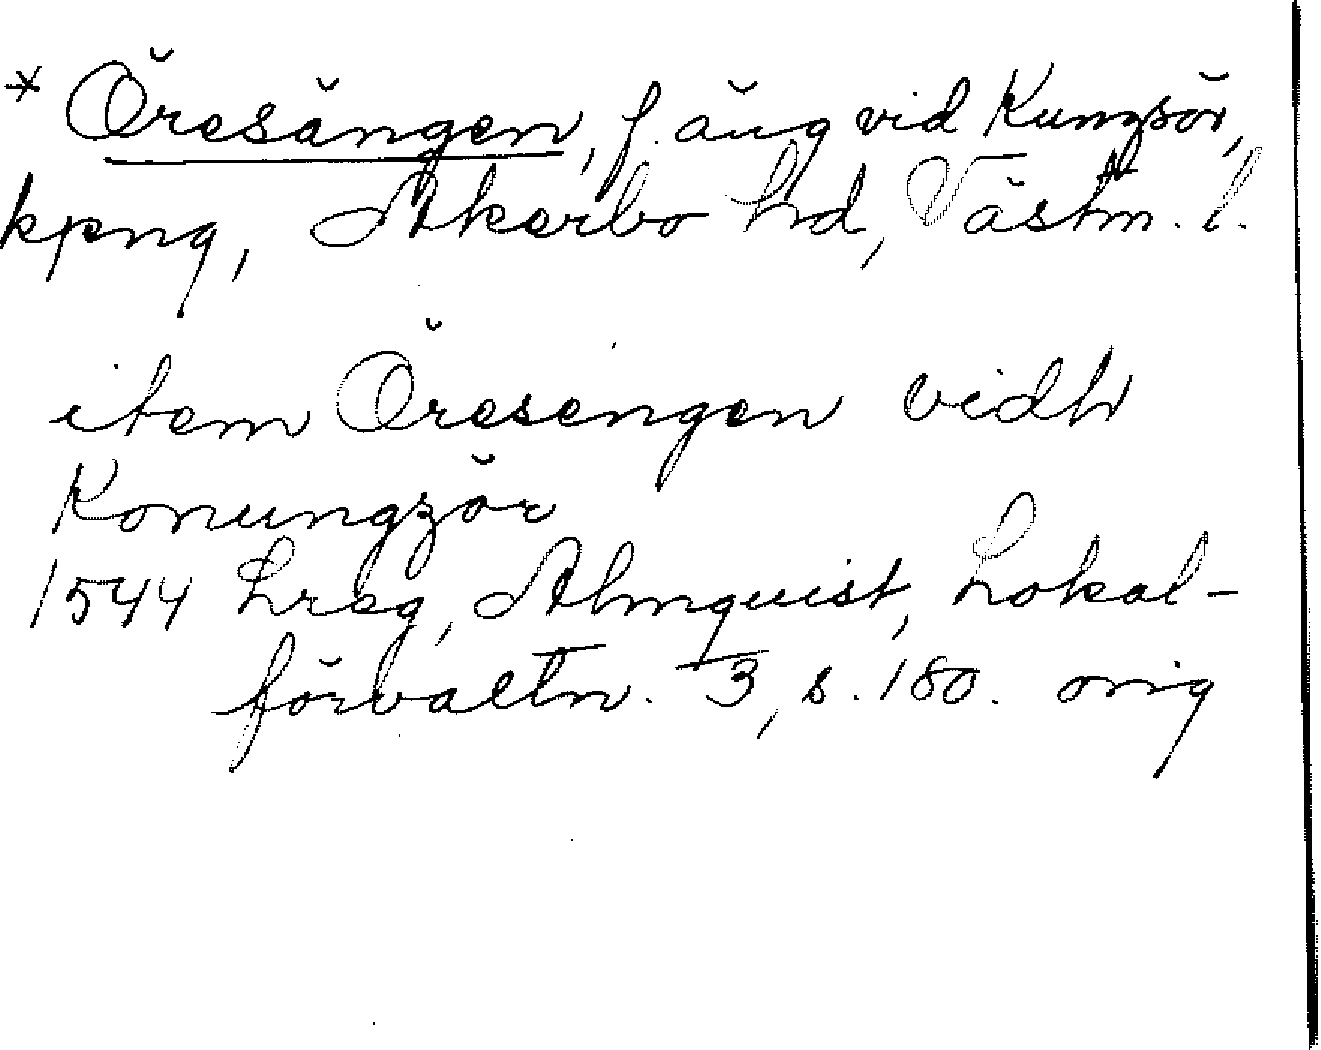 * Öresängen, f. äng vid Kungsör,
kpng, Åkerbo hd, Västm. l.
item Öresengen vidh
Konungzör
1544 Lreg, Almquist, Lokal-
förvaltn. 3, s. 180. orig